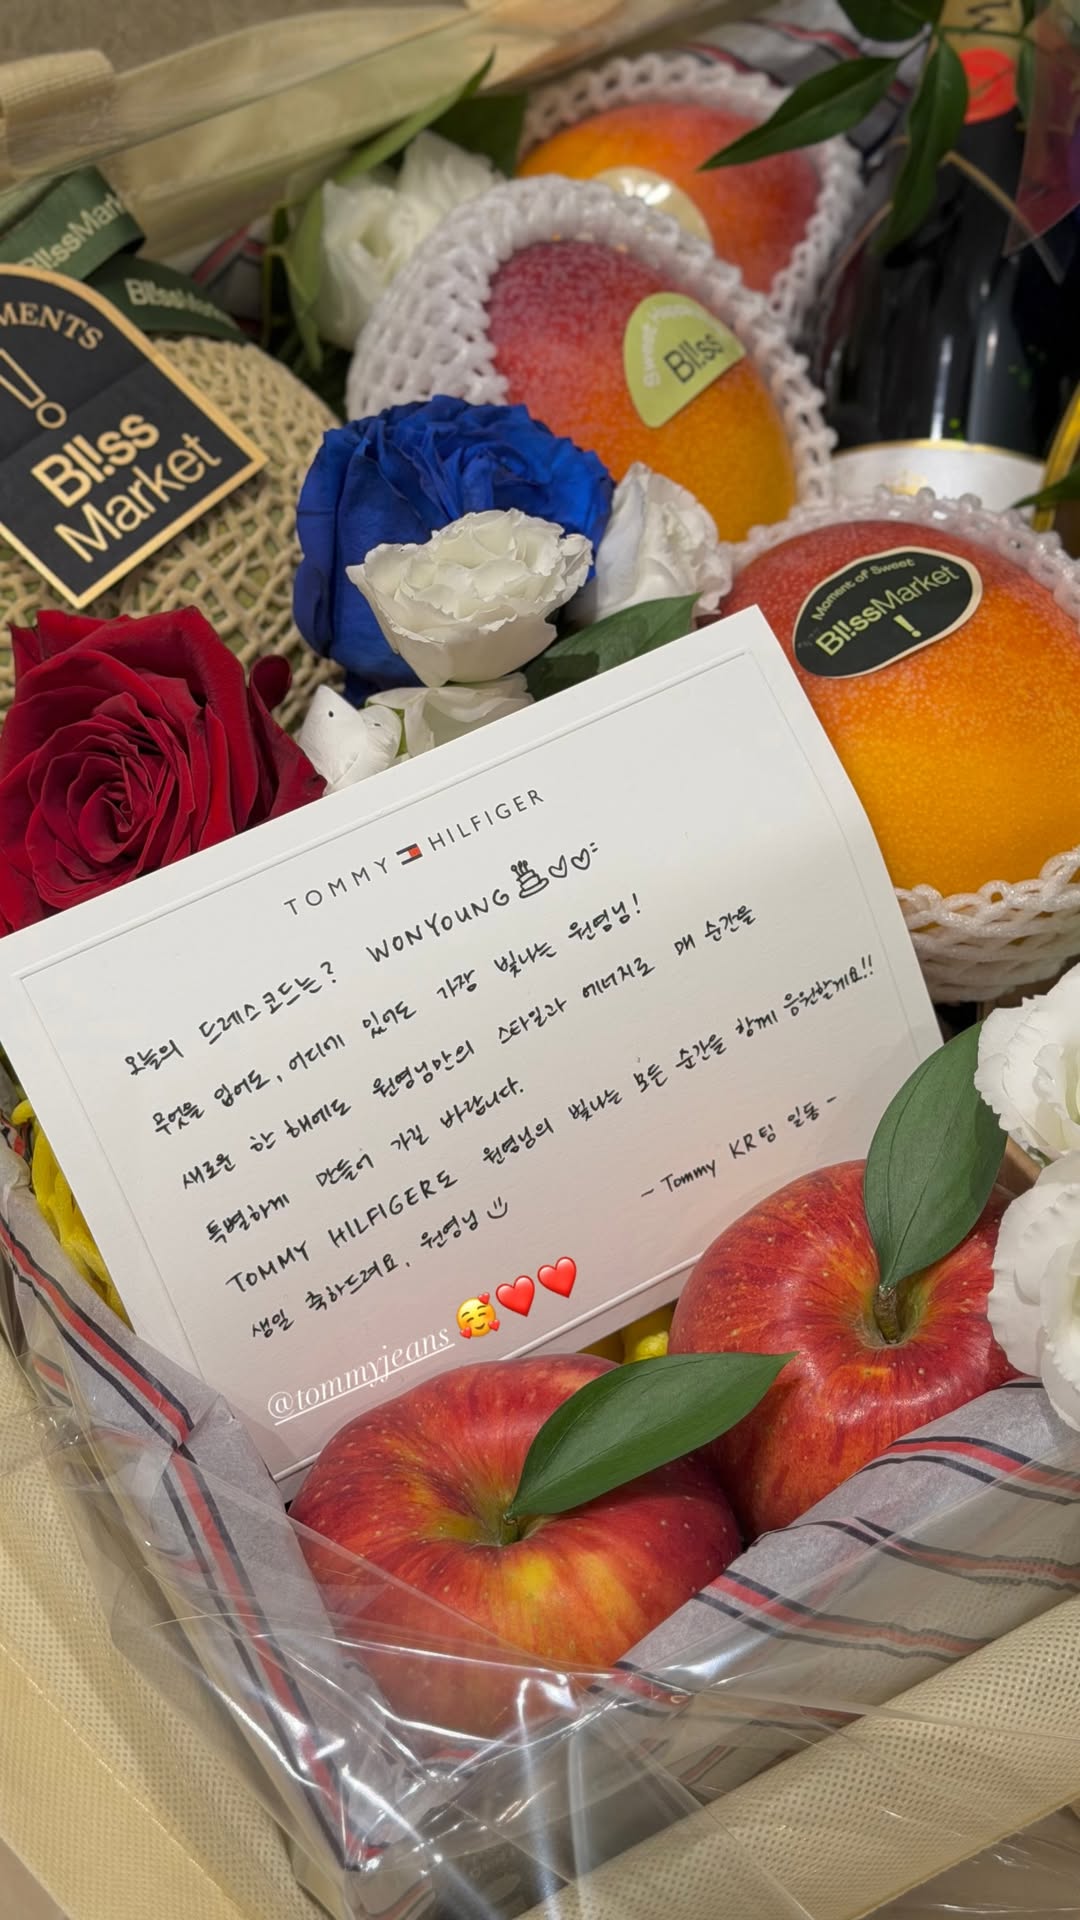 BlissMark
BlissMark
MENTS
Bl!ss
Market
Sweet
Sweet
Bl!ss
Moment of Sweet
Bl!ssMarket
!
TOMMY HILFIGER
오늘의 드레스코드는? WONYOUNG
무엇을 입어도, 어디에 있어도 가장 빛나는 원영님!
새로운 한 해에도 원영님만의 스타일과 에너지로 매 순간을
특별하게 만들어 가길 바랍니다.
TOMMY HILFIGER도 원영님의 빛나는 모든 순간을 함께 응원할게요!!
생일 축하드려요, 원영님
- Tommy KR팀 일동 -
@tommyjeans 🥰❤️❤️